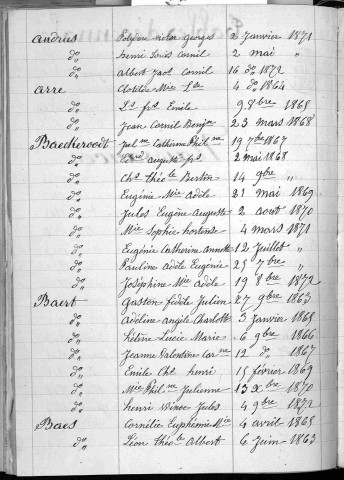 Andries Polydor victor georges 2 Janvier 1871
do henri Louis Cornil 2 mai "
do Albert paol Cornil 16 do 1872
Arre Clotilde Mie Lse 4 do 1864
do Ls frs Emile 9 8bre 1865
do Jean Cornil Benjn 23 mars 1868
Baeckeroodt Catherine Philne 19 7bre 1867
do Edrd auguste frs 2 mai 1868
do Chs Théole Bertin 14 9bre "
do Eugénie Mie Adèle 21 mai 1869
do Jules Eugène Auguste 2 aout 1870
do Mie Sophie hortense 4 mars 1871
do Eugénie Catherine Annette 12 Juillet "
do Pauline Adèle Eugénie 25 7bre "
do Joséphine Mie Adèle 19 8bre 1872
Baert Gaston fidèle Julien 27 9bre 1863
do Adéline angèle Charlotte 3 Janvier 1865
do hélène Lucie Marie 6 9bre 1866
do Jeanne Valentine Carne 12 do 1867
do Emile Chs henri 15 février 1869
do Mie Philne Julienne 13 Xbre 1870
do henri Winoc Jules 4 9bre 1872
Baes Cornélie Euphémie Mie 4 avril 1865
do Léon Théole Albert 6 Juin 1863